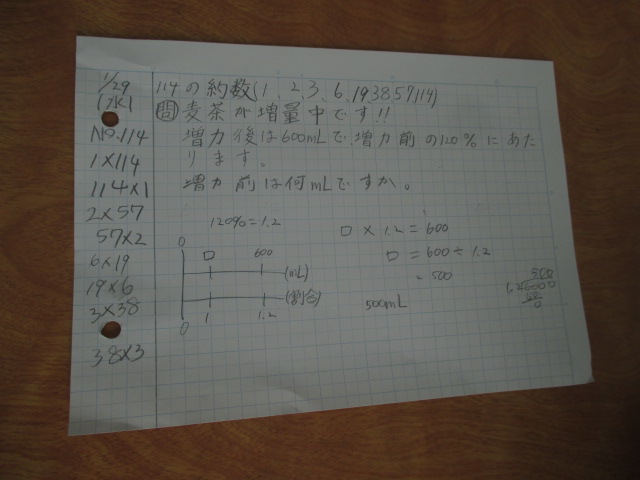 1/29
(水)
No.114
1×114
114×1
2×57
57×2
6×19
19×6
3×38
38×3
114の約数(1、2、3、6、19,38,57,114)
問 麦茶が増量中です!!
増力後は600mLで増力前の120%にあた
ります。
増力前は何mLですか。
120%=1.2
0 □ 600 (mL)
0 1 1.2 (割合)
□×1.2=600
□=600÷1.2
=500
500mL
500
1.2 6000
60
0